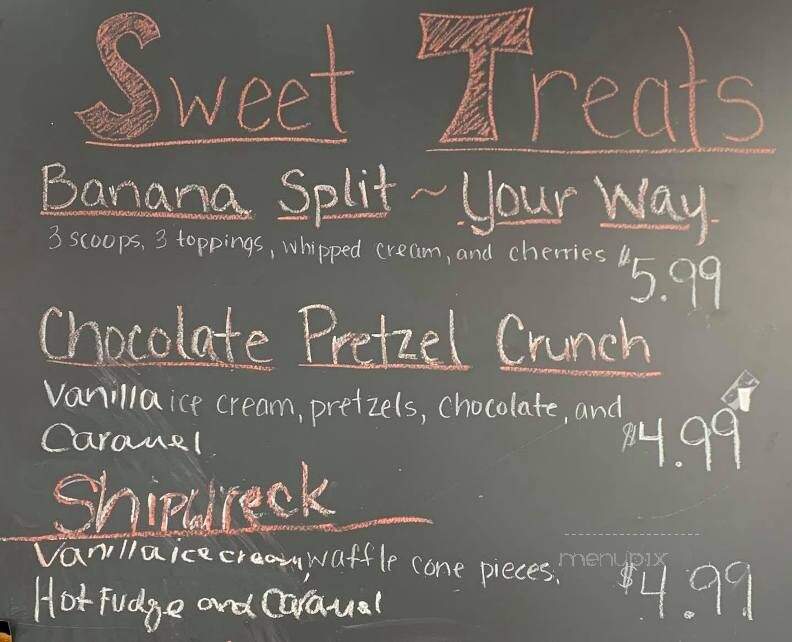 Sweet Treats
Banana Split ~ Your Way
3 scoops, 3 toppings, whipped cream, and cherries $5.99
Chocolate Pretzel Crunch
Vanilla ice cream, pretzels, chocolate, and
Caramel $4.99
Shipwreck
Vanilla ice cream, waffle cone pieces,
menupix
Hot Fudge and Caramel $4.99